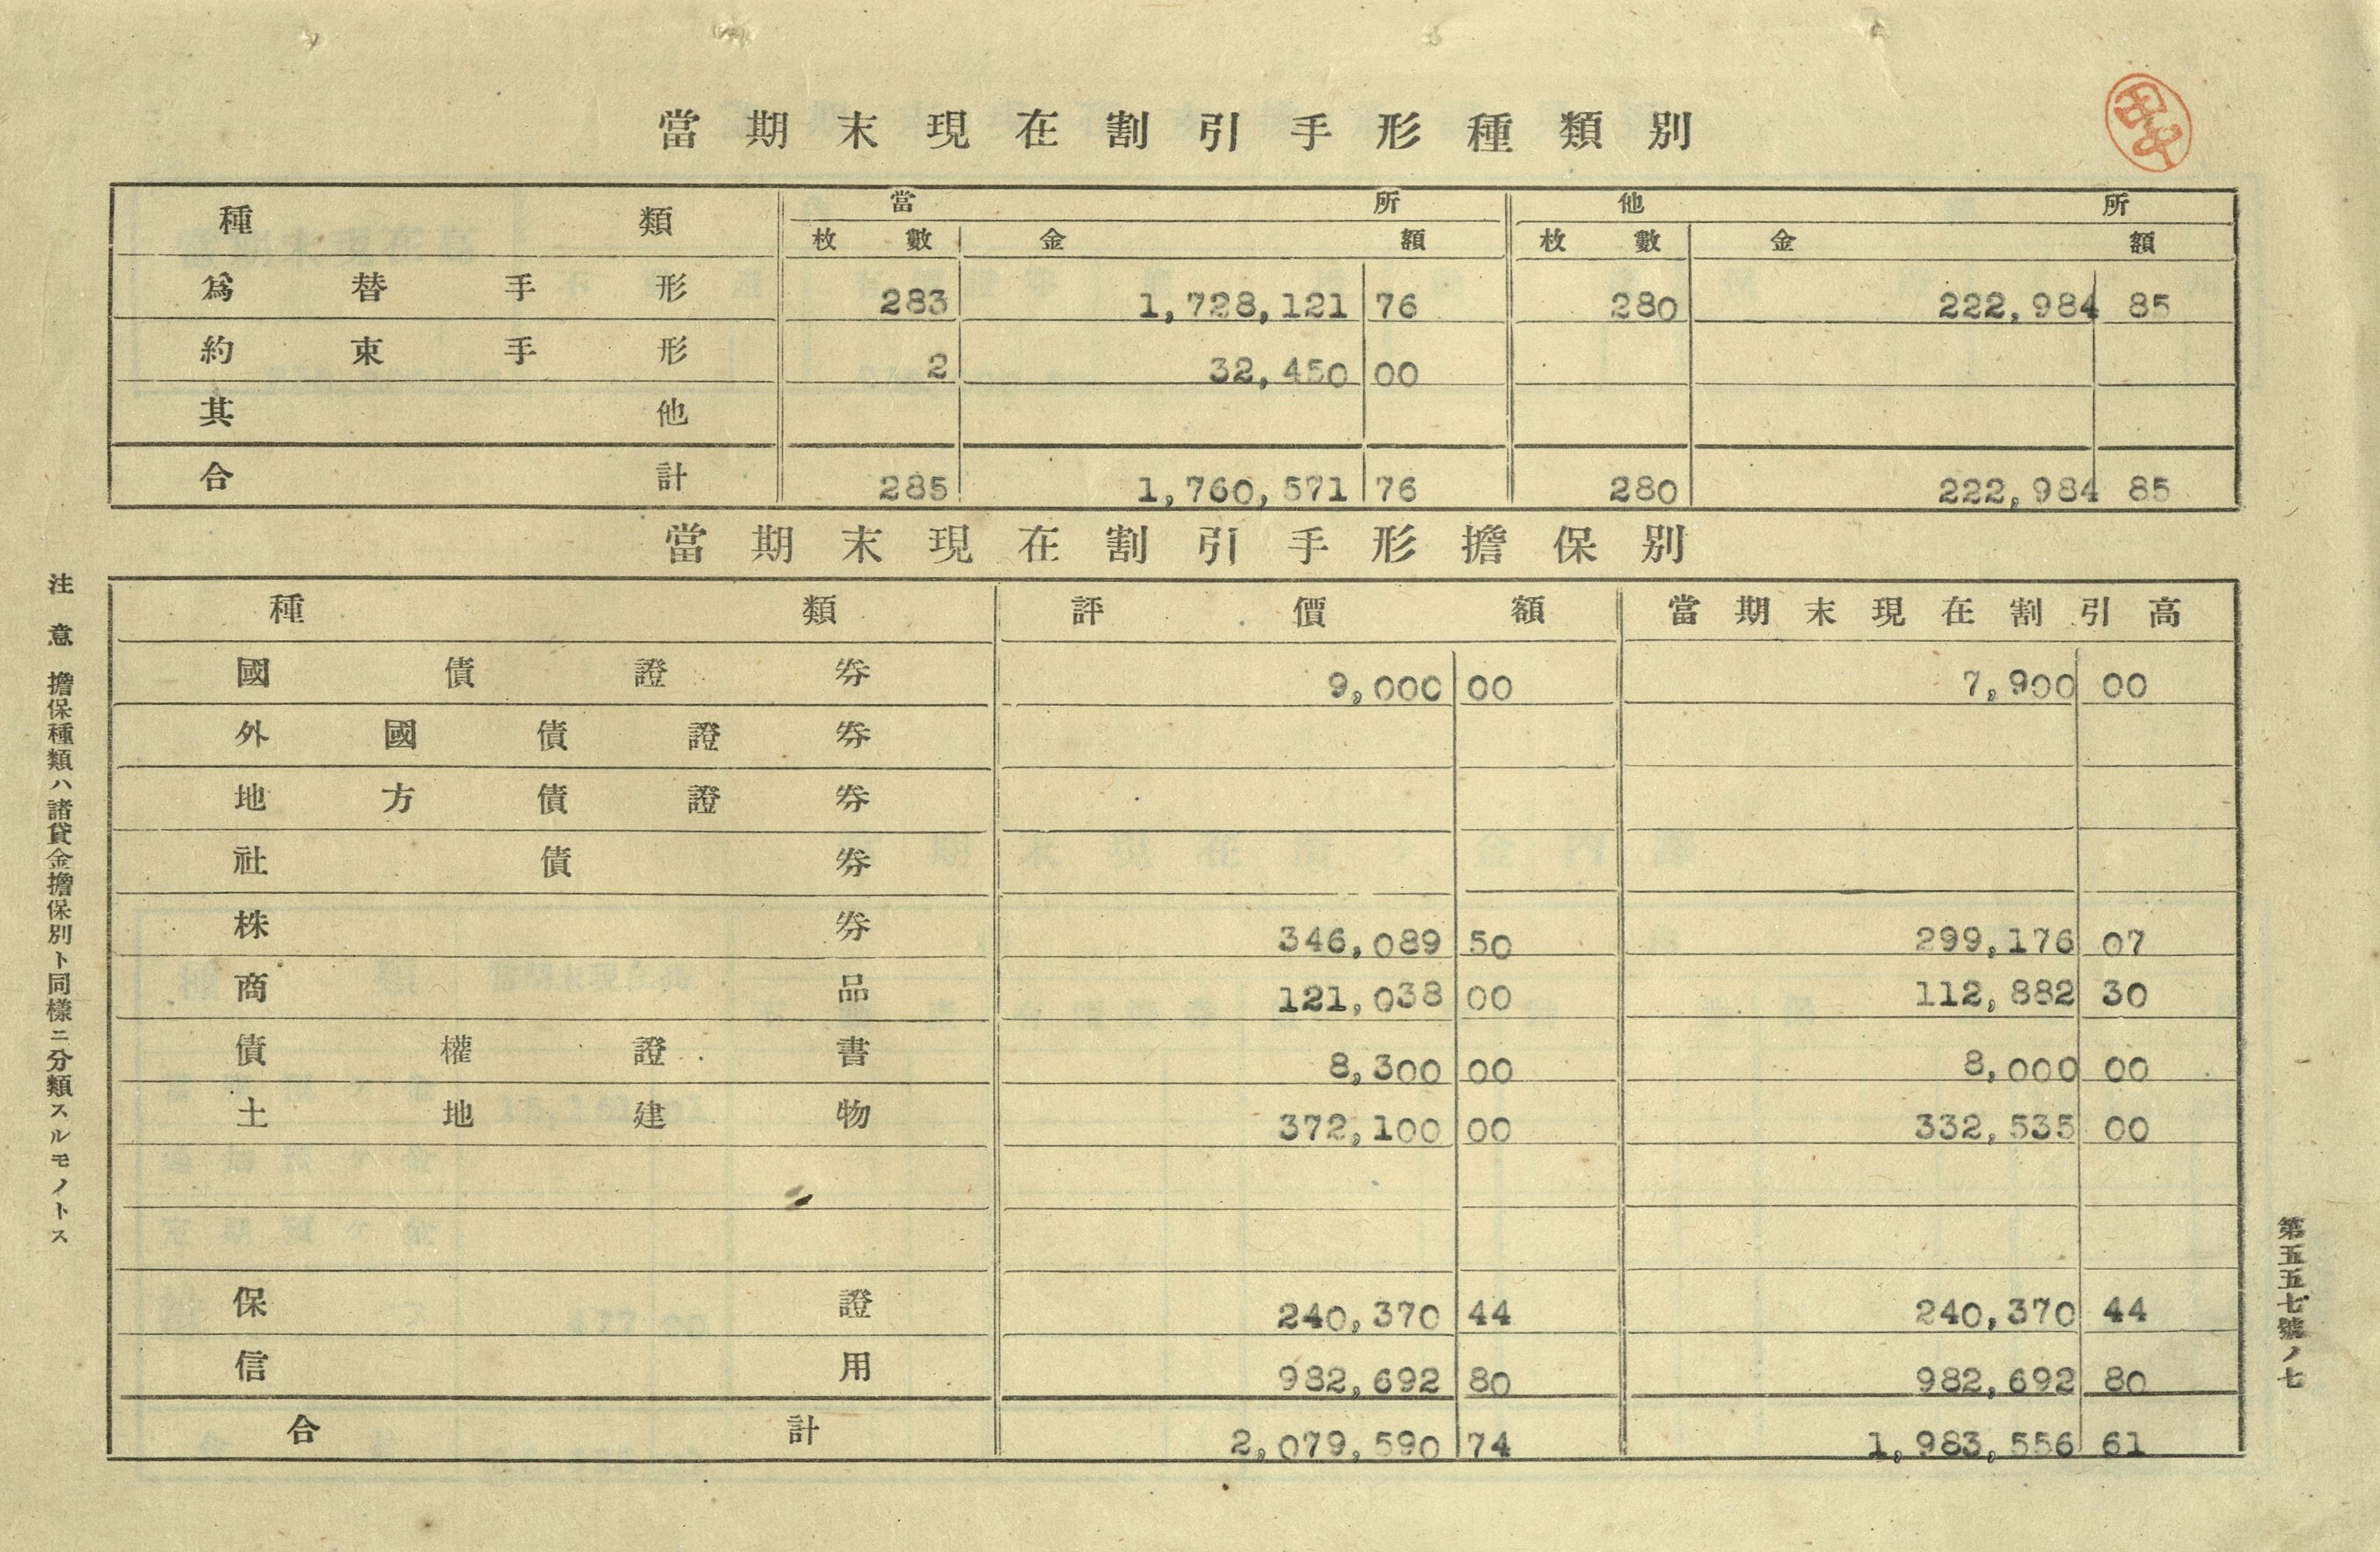 當期末現在割引手形種類別
種類 當所 他所
枚數 金額 枚數 金額
爲替手形 283 1,728,121 76 280 222,984 85
約束手形 2 32,450 00
其他
合計 285 1,760,571 76 280 222,984 85
當期末現在割引手形擔保別
種類 評價額 當期末現在割引高
國債證券 9,000 00 7,900 00
外國債證券
地方債證券
社債券
株券 346,089 50 299,176 07
商品 121,038 00 112,882 30
債權證書 8,300 00 8,000 00
土地建物 372,100 00 332,535 00
保證 240,370 44 240,370 44
信用 982,692 80 982,692 80
合計 2,079,590 74 1,983,556 61
注意 擔保種類ハ諸貸金擔保別ト同樣ニ分類スルモノトス
第五五七號ノ七